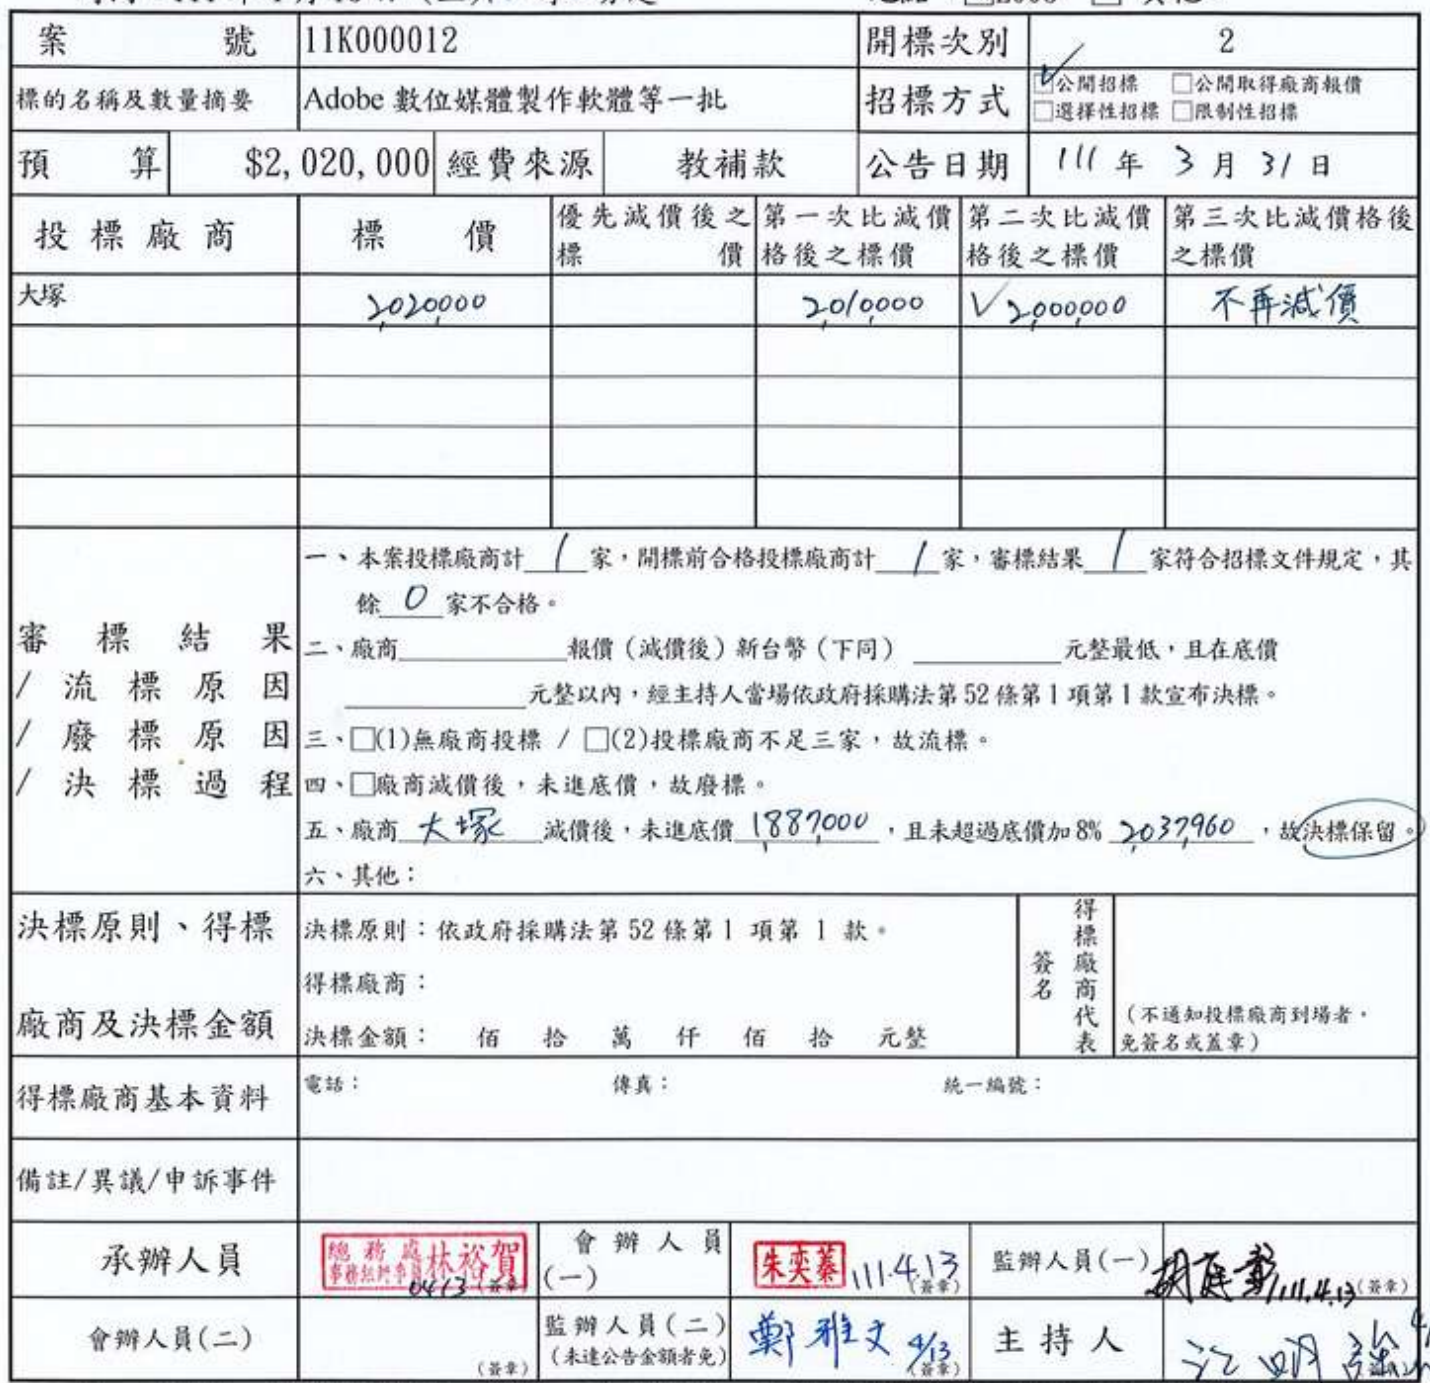 案 號 11K000012 開標次別 2
標的名稱及數量摘要 Adobe 數位媒體製作軟體等一批 招標方式 ☑公開招標 □公開取得廠商報價
□選擇性招標 □限制性招標
預 算 $2,020,000 經費來源 教補款 公告日期 111 年 3 月 31 日
投標廠商 標 價 優先減價後之標 價 第一次比減價格後之標價 第二次比減價格後之標價 第三次比減價格後之標價
大塚 2,020,000 2,010,000 ✓2,000,000 不再減價
審標結果
/流標原因
/廢標原因
/決標過程
一、本案投標廠商計 1 家,開標前合格投標廠商計 1 家,審標結果 1 家符合招標文件規定,其
餘 0 家不合格。
二、廠商 報價(減價後)新台幣(下同) 元整最低,且在底價
元整以內,經主持人當場依政府採購法第52條第1項第1款宣布決標。
三、□(1)無廠商投標 / □(2)投標廠商不足三家,故流標。
四、□廠商減價後,未進底價,故廢標。
五、廠商 大塚 減價後,未進底價 1,887,000,且未超過底價加8% 2,037,960,故決標保留。
六、其他:
決標原則、得標
廠商及決標金額
決標原則:依政府採購法第52條第1 項第 1 款。
得標廠商:
決標金額: 佰 拾 萬 仟 佰 拾 元整
得標廠商代表
簽名
(不通知投標廠商到場者,
免簽名或蓋章)
得標廠商基本資料 電話: 傳真: 統一編號:
備註/異議/申訴事件
承辦人員 總務處 林裕賀 0413 (簽章) 會辦人員(一) 朱奕蓁 111.4.13 (簽章) 監辦人員(一) 111.4.13 (簽章)
會辦人員(二) (簽章) 監辦人員(二) (未達公告金額者免) 鄭雅文 4/13 (簽章) 主持人